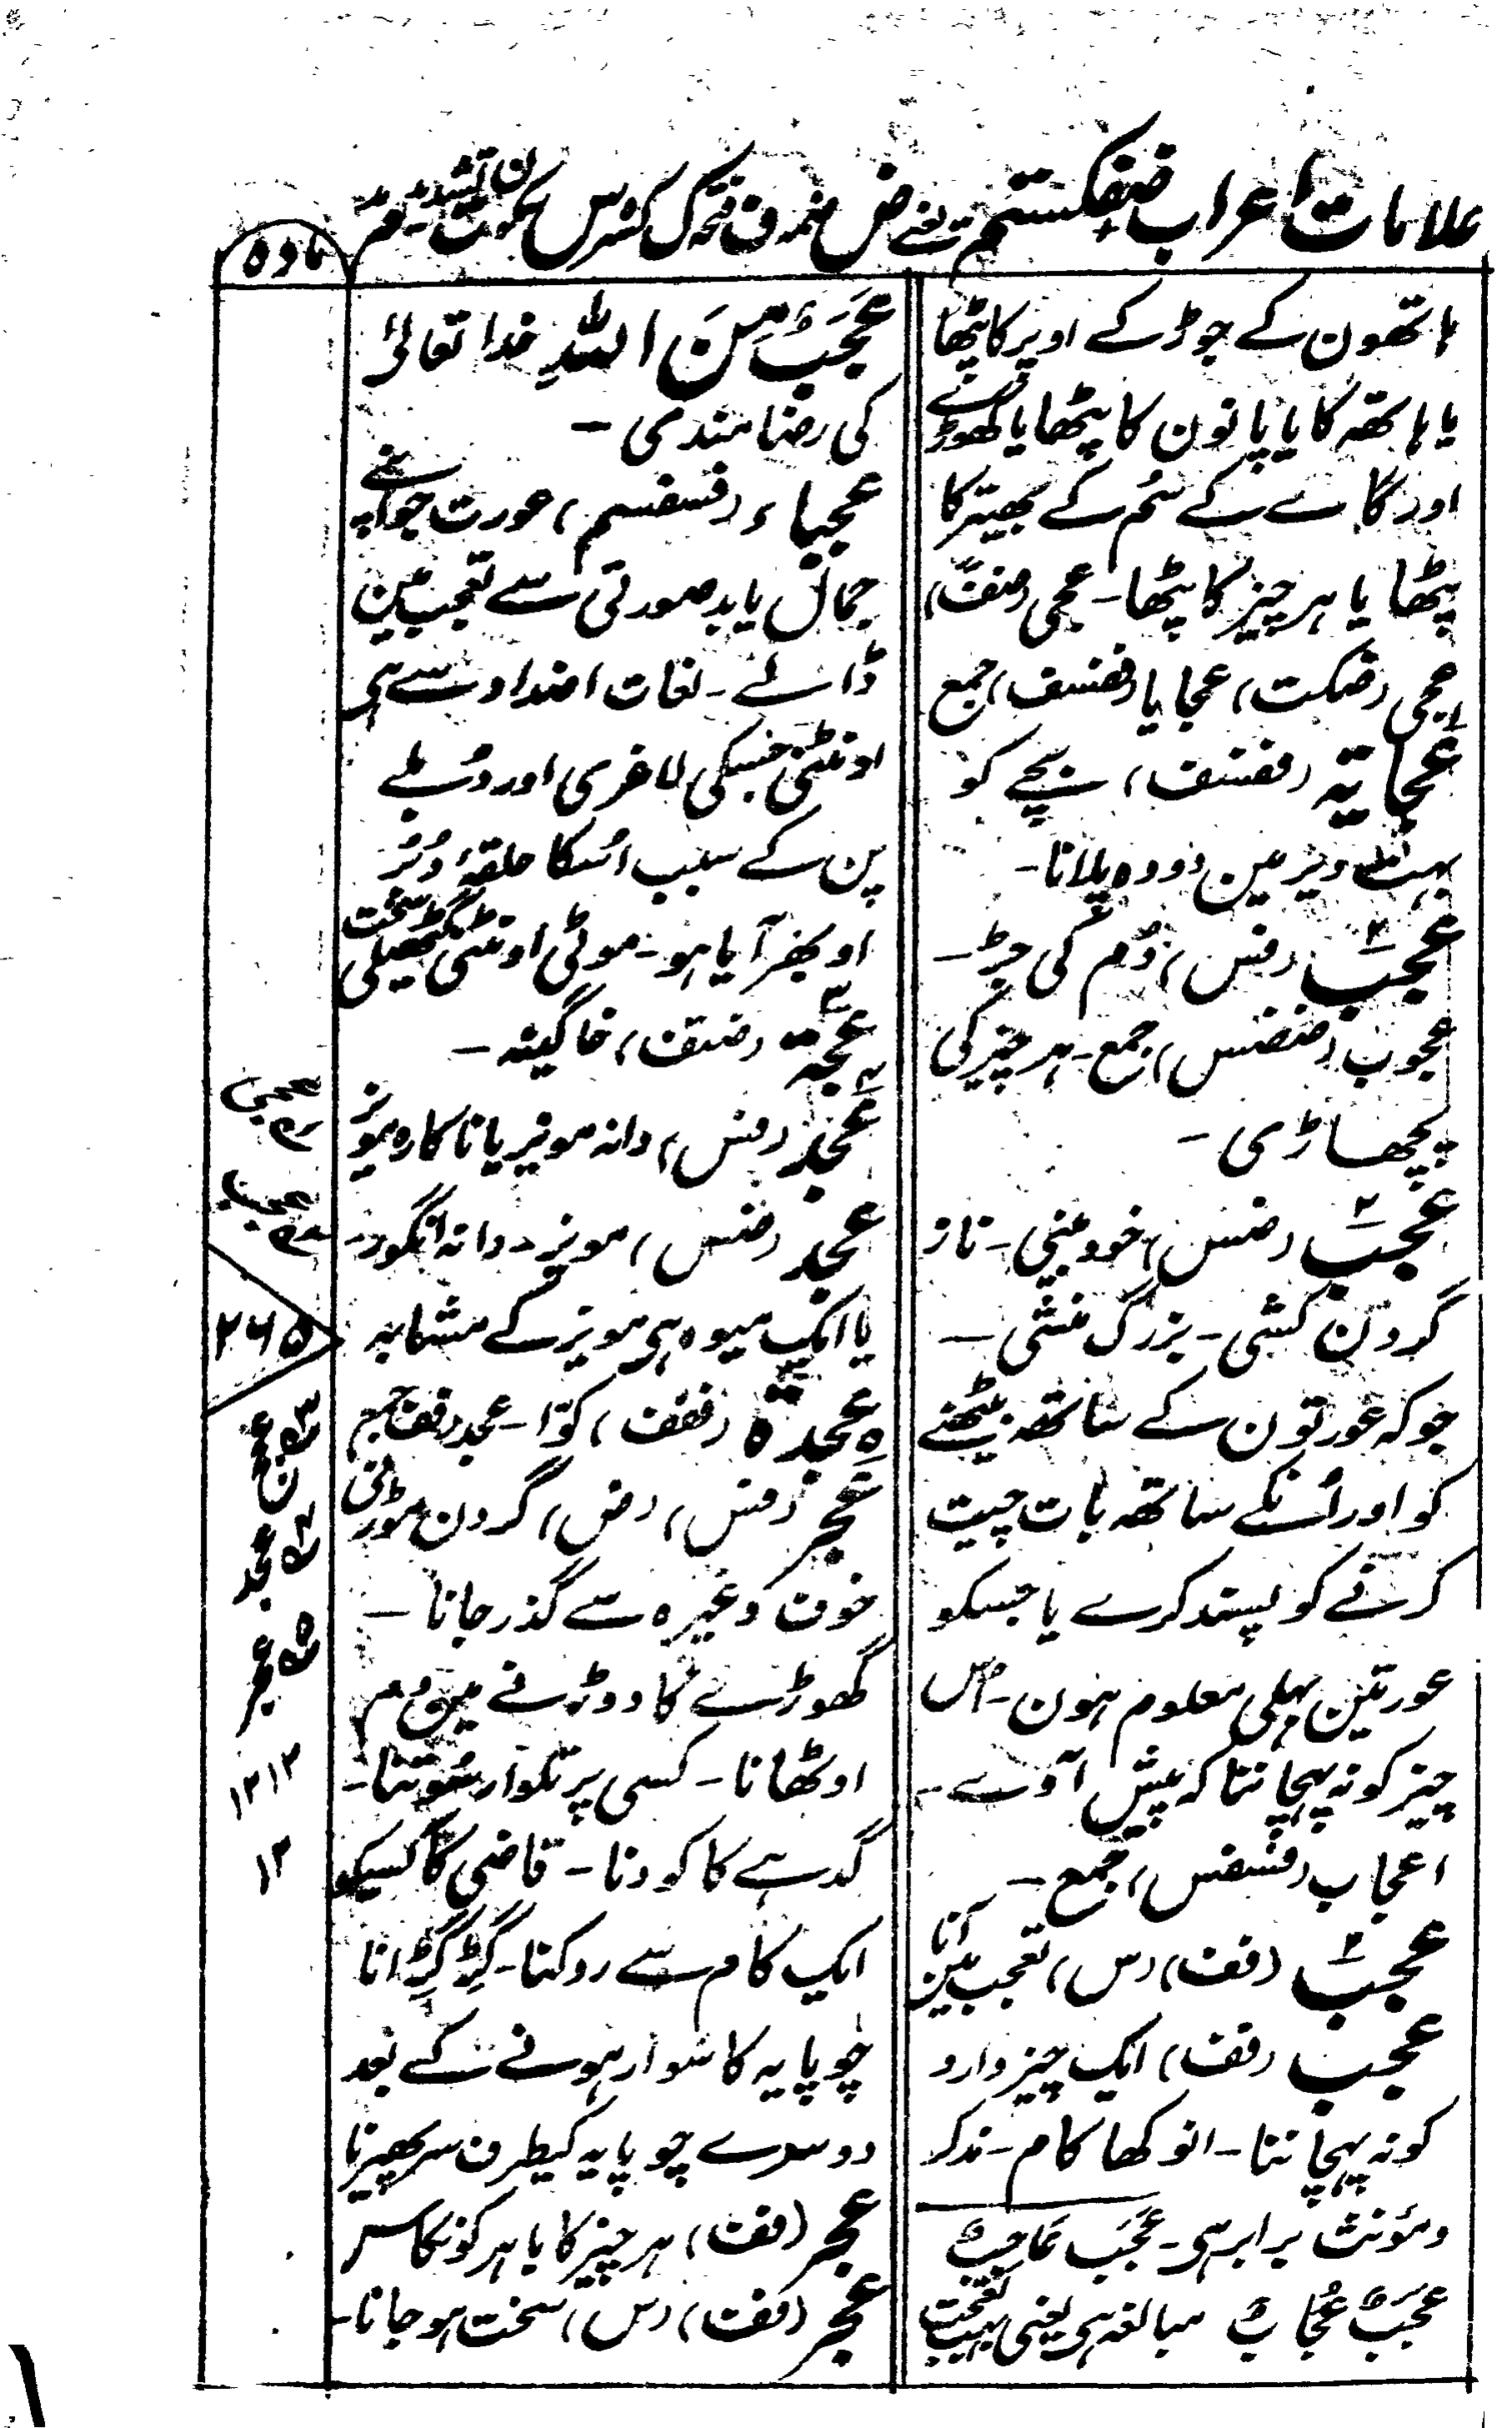 علامات اعراب ضفکستم یعنے ض ضمہ ف فتحہ ک کسرہ س سکون ت تشدید م مد
مادہ
ہاتھون کے جوڑ کے اوپر کا پٹھا
یا ہاتھ کا یا پانون کا پٹھا یا گھوڑے
اور گاے کے سُم کے بھیتر کا
پٹھا یا ہر چیز کا پٹھا۔ عجی (ضفت)
عجی (ضکت) عجایا (ففسف) جمع
عُجایتہ (ففسف) بچے کو
بہت دیر مین دودہ پلانا۔
عجب (فس) دُم کی جڑ۔
عجوب (ضضس) جمع۔ ہر چیز کی
پچھاڑی۔
عجب (ضس) خود بینی۔ ناز
گردن کشی۔ بزرگ منشی۔
جو کہ عورتون کے ساتھ بیٹھنے
کو اور اُنکے ساتھ بات چیت
کرنے کو پسند کرے یا جسکو
عورتین بھلی معلوم ہون۔ اُس
چیز کو نہ پہچاننا کہ پیش آوے۔
اعجاب (فسفس) جمع۔
عجب (فف) (س) تعجب مین آنا
عجب (فف) ایک چیز وارد
کو نہ پہچاننا۔ انوکھا کام۔ مذکر
و مؤنث برابر ہی۔ عَجَبٌ عَاجِبٌ
عَجَبٌ عُجَابٌ مبالغہ ہی یعنی بہت تعجب
عَجَبٌ مِّنَ اللّٰہِ خدا تعالیٰ
کی رضامندی۔
عجباء (فسفسم) عورت جو اپنے
جمال یا بد صورتی سے تعجب مین
ڈالے۔ لغات اضداد سے ہی
اونٹنی جسکی لاغری اور دُبلے
پن کے سبب اُسکا حلقۂ دُبر
اوبھر آیا ہو۔ موٹی اونٹنی سخت گٹھیلی
عجة (ضتف) خاگینہ۔
عجد (فس) دانہ مویز یا ناکارہ مویز
عجد (ضس) مویز۔ دانہ انگور۔
یا ایک میوہ ہی مویز کے مشابہ
عجدة (ففف) کوّا۔ عجد (فف) جمع
عجر (فس) (ض) گردن موڑنی
خوف وغیرہ سے گذر جانا۔
گھوڑے کا دوڑنے مین دُم
اوٹھانا۔ کسی پر تلوار سُوتنا۔
گدہے کا کودنا۔ قاضی کا کسیکو
ایک کام سے روکنا۔ گِڑگِڑانا
چوپایہ کا سوار ہونے کے بعد
دوسرے چوپایہ کیطرف سر پھیرنا
عجر (فف) ہر چیز کا باہر کو نکاس
عجر (فف) (س) سخت ہو جانا۔
عجی
عجب
۲۶۵
۳ عجج
۴ عجد
۵ عجر
۱۲۱۲
۱۲